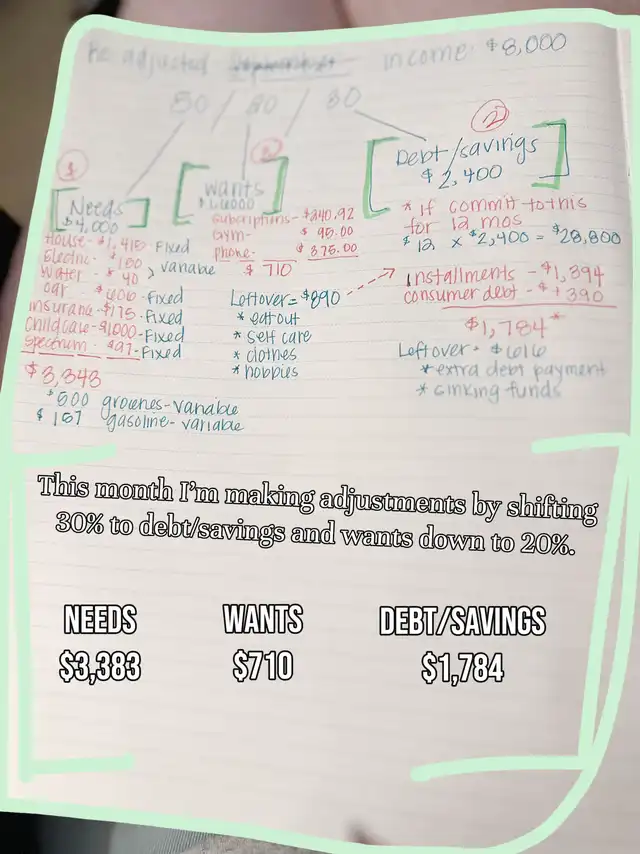 Re adjusted income $8,000
50 / 20 / 30
1
Needs
$4,000
House - $1,415 - Fixed
Electric - $150
Water - $ 40 > variable
car - $406 - Fixed
insurance - $175 - Fixed
Childcare - $1,000 - Fixed
Spectrum - $97 - Fixed
$3,343
$500 groceries - variable
$ 157 gasoline - variable
wants
$1,600
subscriptions - $240.92
Gym - $ 95.00
phone - $ 375.00
$ 710
Leftover = $890
* eat out
* self care
* clothes
* hobbies
2
Debt/savings
$2,400
* if commit to this
for 12 mos
$12 x $2,400 = $28,800
installments - $1,394
consumer debt - $ + 390
$1,784*
Leftover - $616
* extra debt payment
* sinking funds
This month I'm making adjustments by shifting
30% to debt/savings and wants down to 20%.
NEEDS WANTS DEBT/SAVINGS
$3,383 $710 $1,784